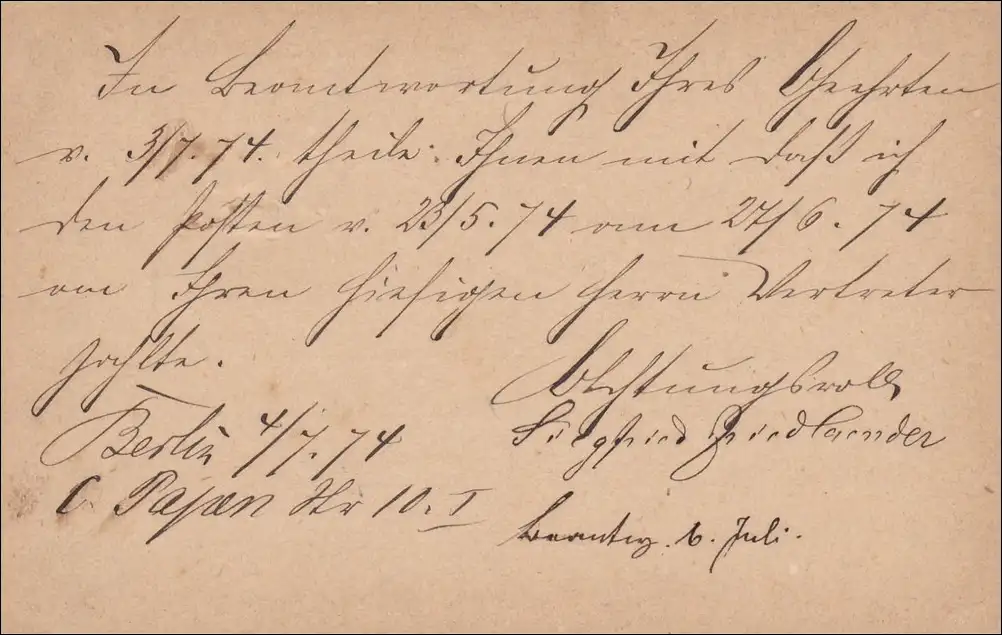 In Beantwortung Ihres Geehrten
v. 3/7. 74. theile Ihnen mit daß ich
den Posten v. 23/5. 74 am 27/6. 74
an Ihren hiesigen Herrn Vertreter
zahlte.
Achtungsvoll
Siegfried Friedlaender
Berlin 4/7. 74
C. Papen Str 10. I
beantw. 6. Juli.